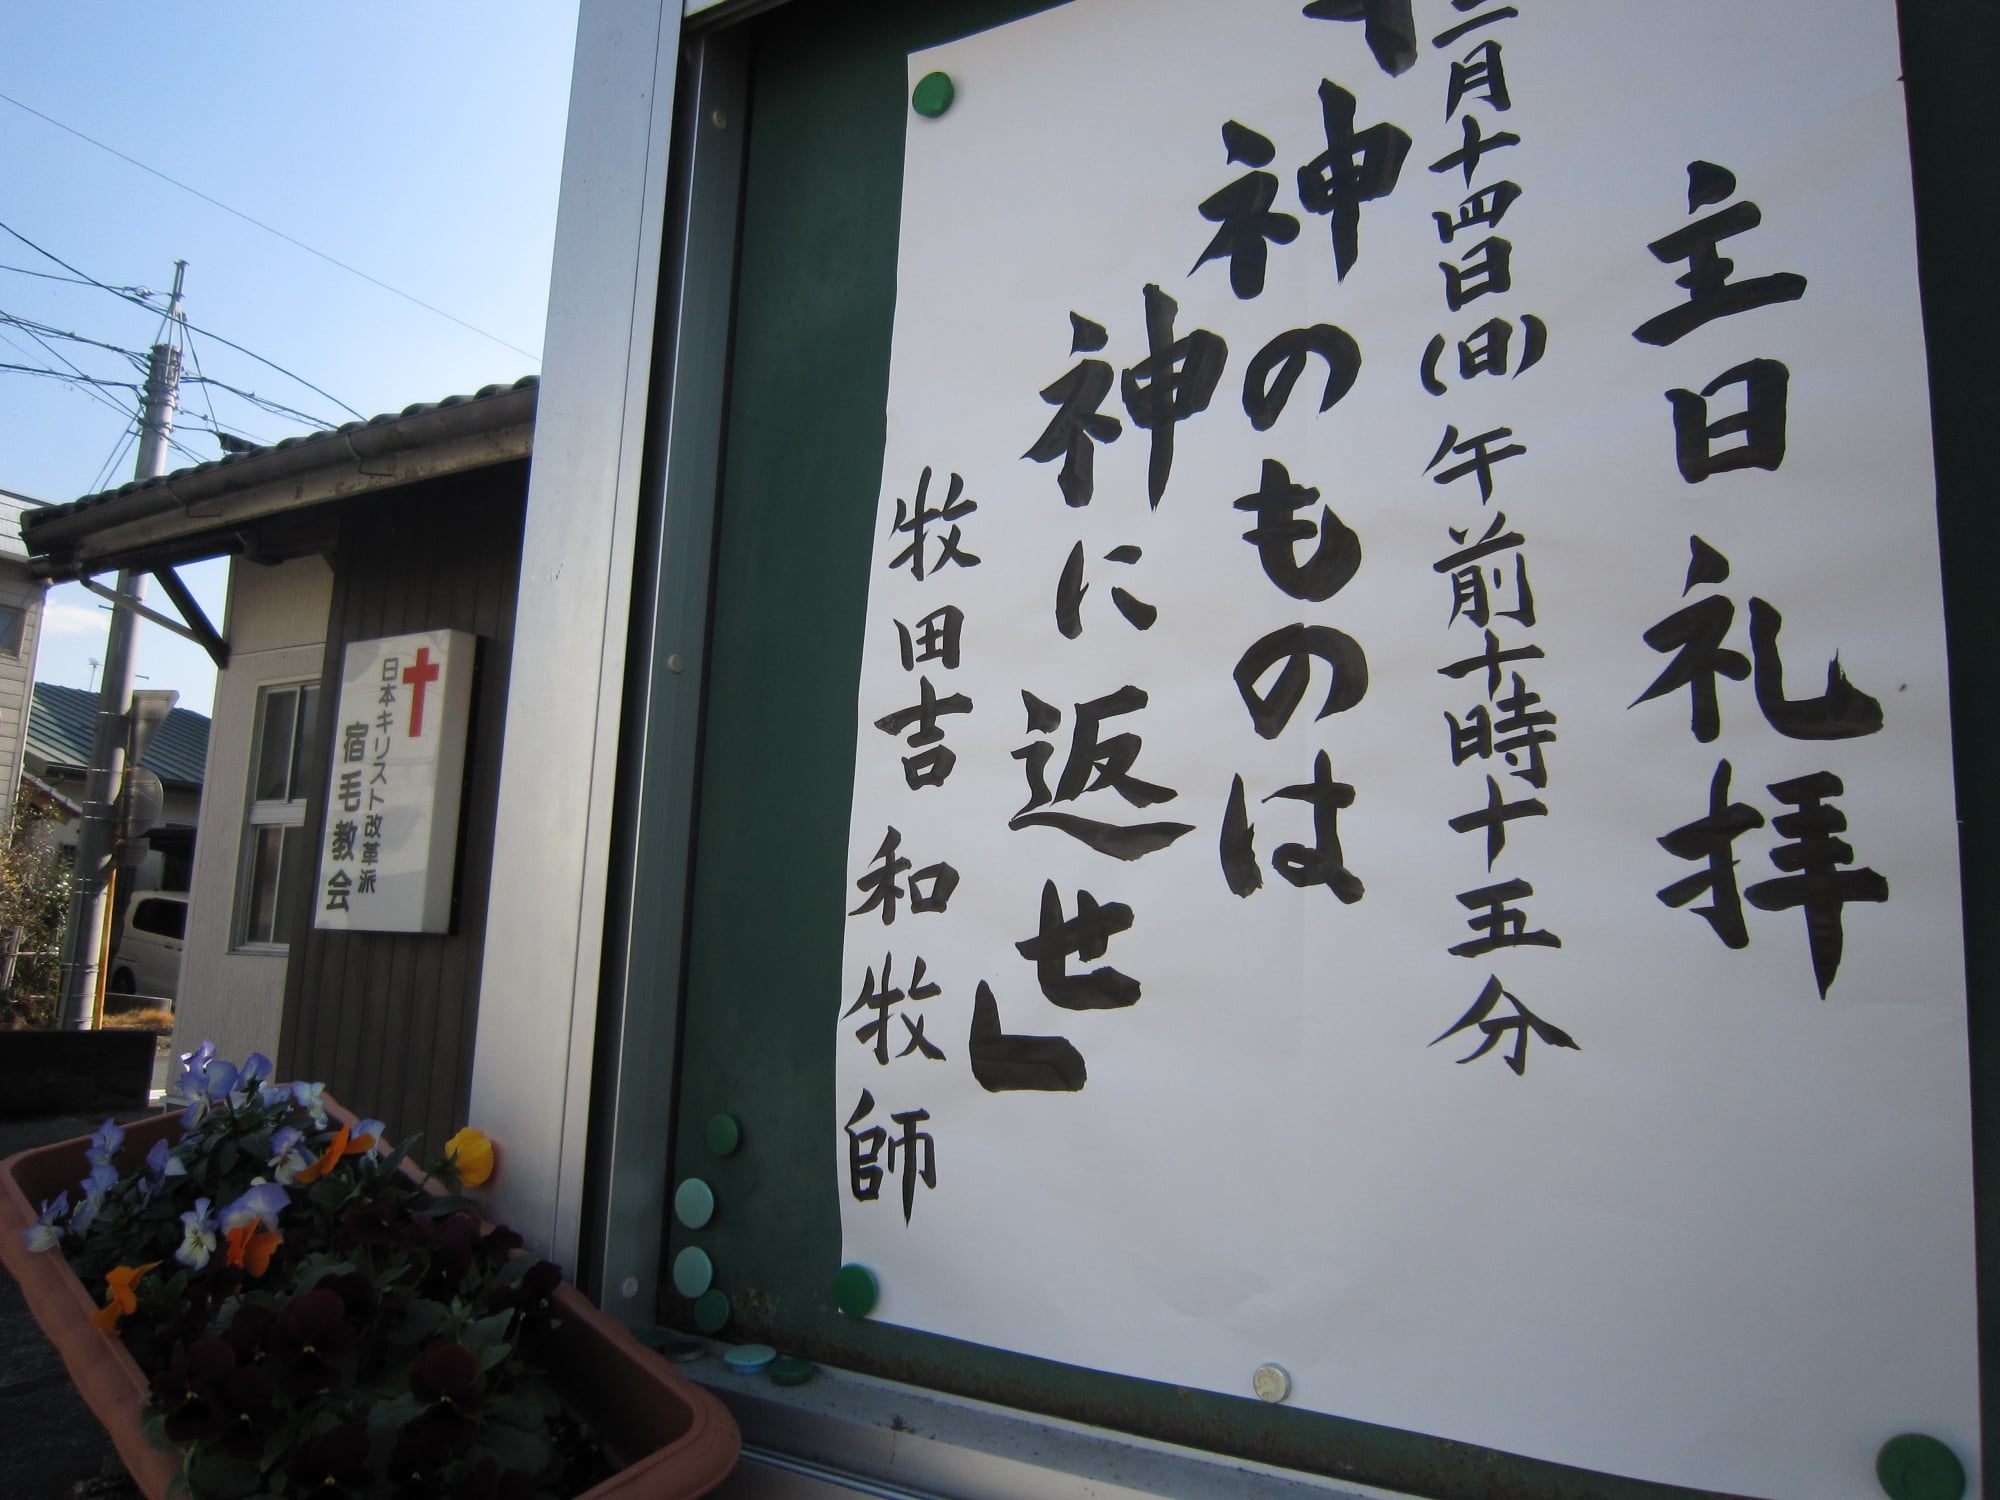 主日礼拝
二月十四日(日)午前十時十五分
神のものは
神に返せ」
牧田吉和牧師
日本キリスト改革派
宿毛教会